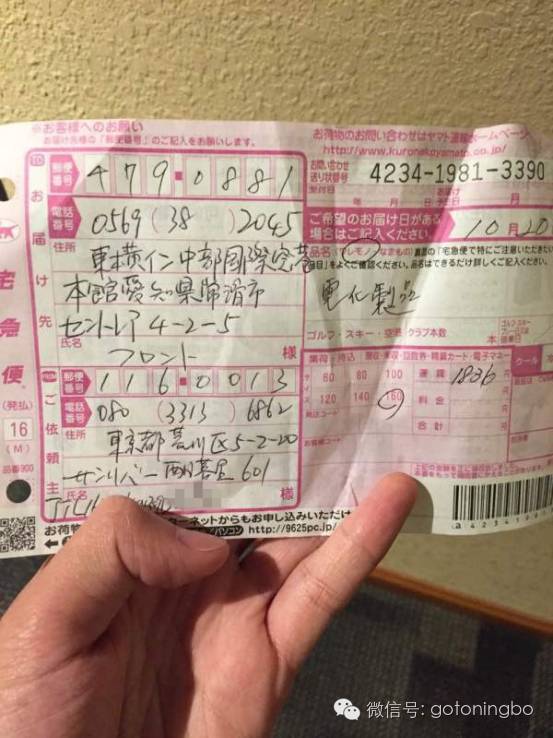 ※お客様へのお願い
お届け先様の「郵便番号」のご記入をお願いします。
お荷物のお問い合わせはヤマト運輸ホームページへ
http://www.kuronekoyamato.co.jp/
お問い合わせ
送り状番号
4234-1981-3390
受付日
お届け先
郵便番号
479-0881
電話番号
0569(38)2045
ご希望のお届け日がある
場合はご記入ください。
10月20
住所
東横イン中部国際空港
本館愛知県常滑市
セントレア4-2-5
氏名
フロント
様
品名
電化製品
ゴルフ・スキー・空港
クラブ本数
本
宅急便
(発払)
16
(M)
品番900
ご依頼主
郵便番号
116-0013
電話番号
080(3313)6862
住所
東京都荒川区5-2-20
サンリバー西日暮里601
氏名
様
60 80 100
120 140 160
運賃
1836
料金
合計
円
クール
ターネットからもお申し込みいただけ
http://9625pc.jp/
微信号: gotoningbo